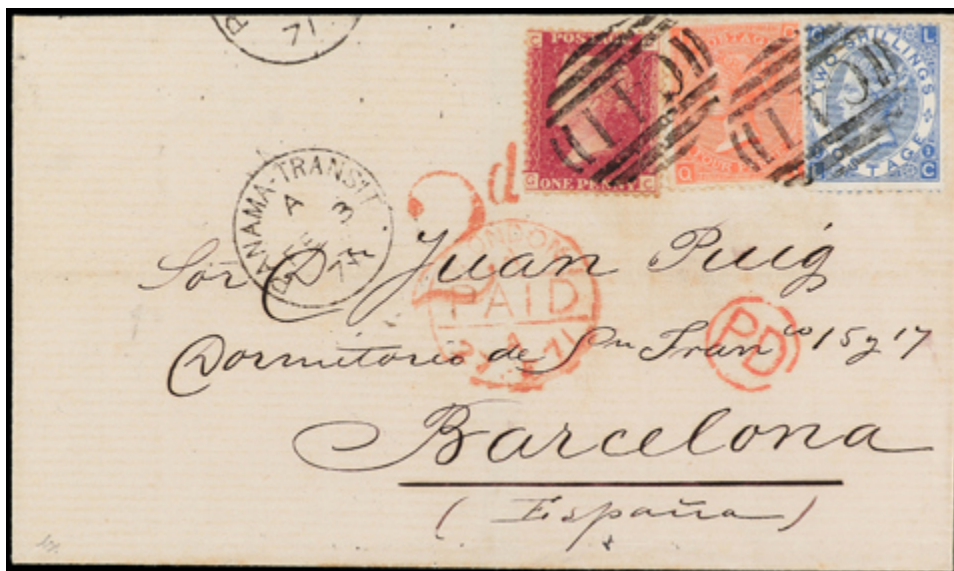 71
POSTAGE
ONE PENNY
G C
POSTAGE
TWO SHILLINGS
POSTAGE
L C
PANAMA-TRANSIT
A
FE 3
71
2d
LONDON
PAID
71
PD
Sor Dn Juan Puig
Dormitorio de Sn Franco 15 y 17
Barcelona
(España)